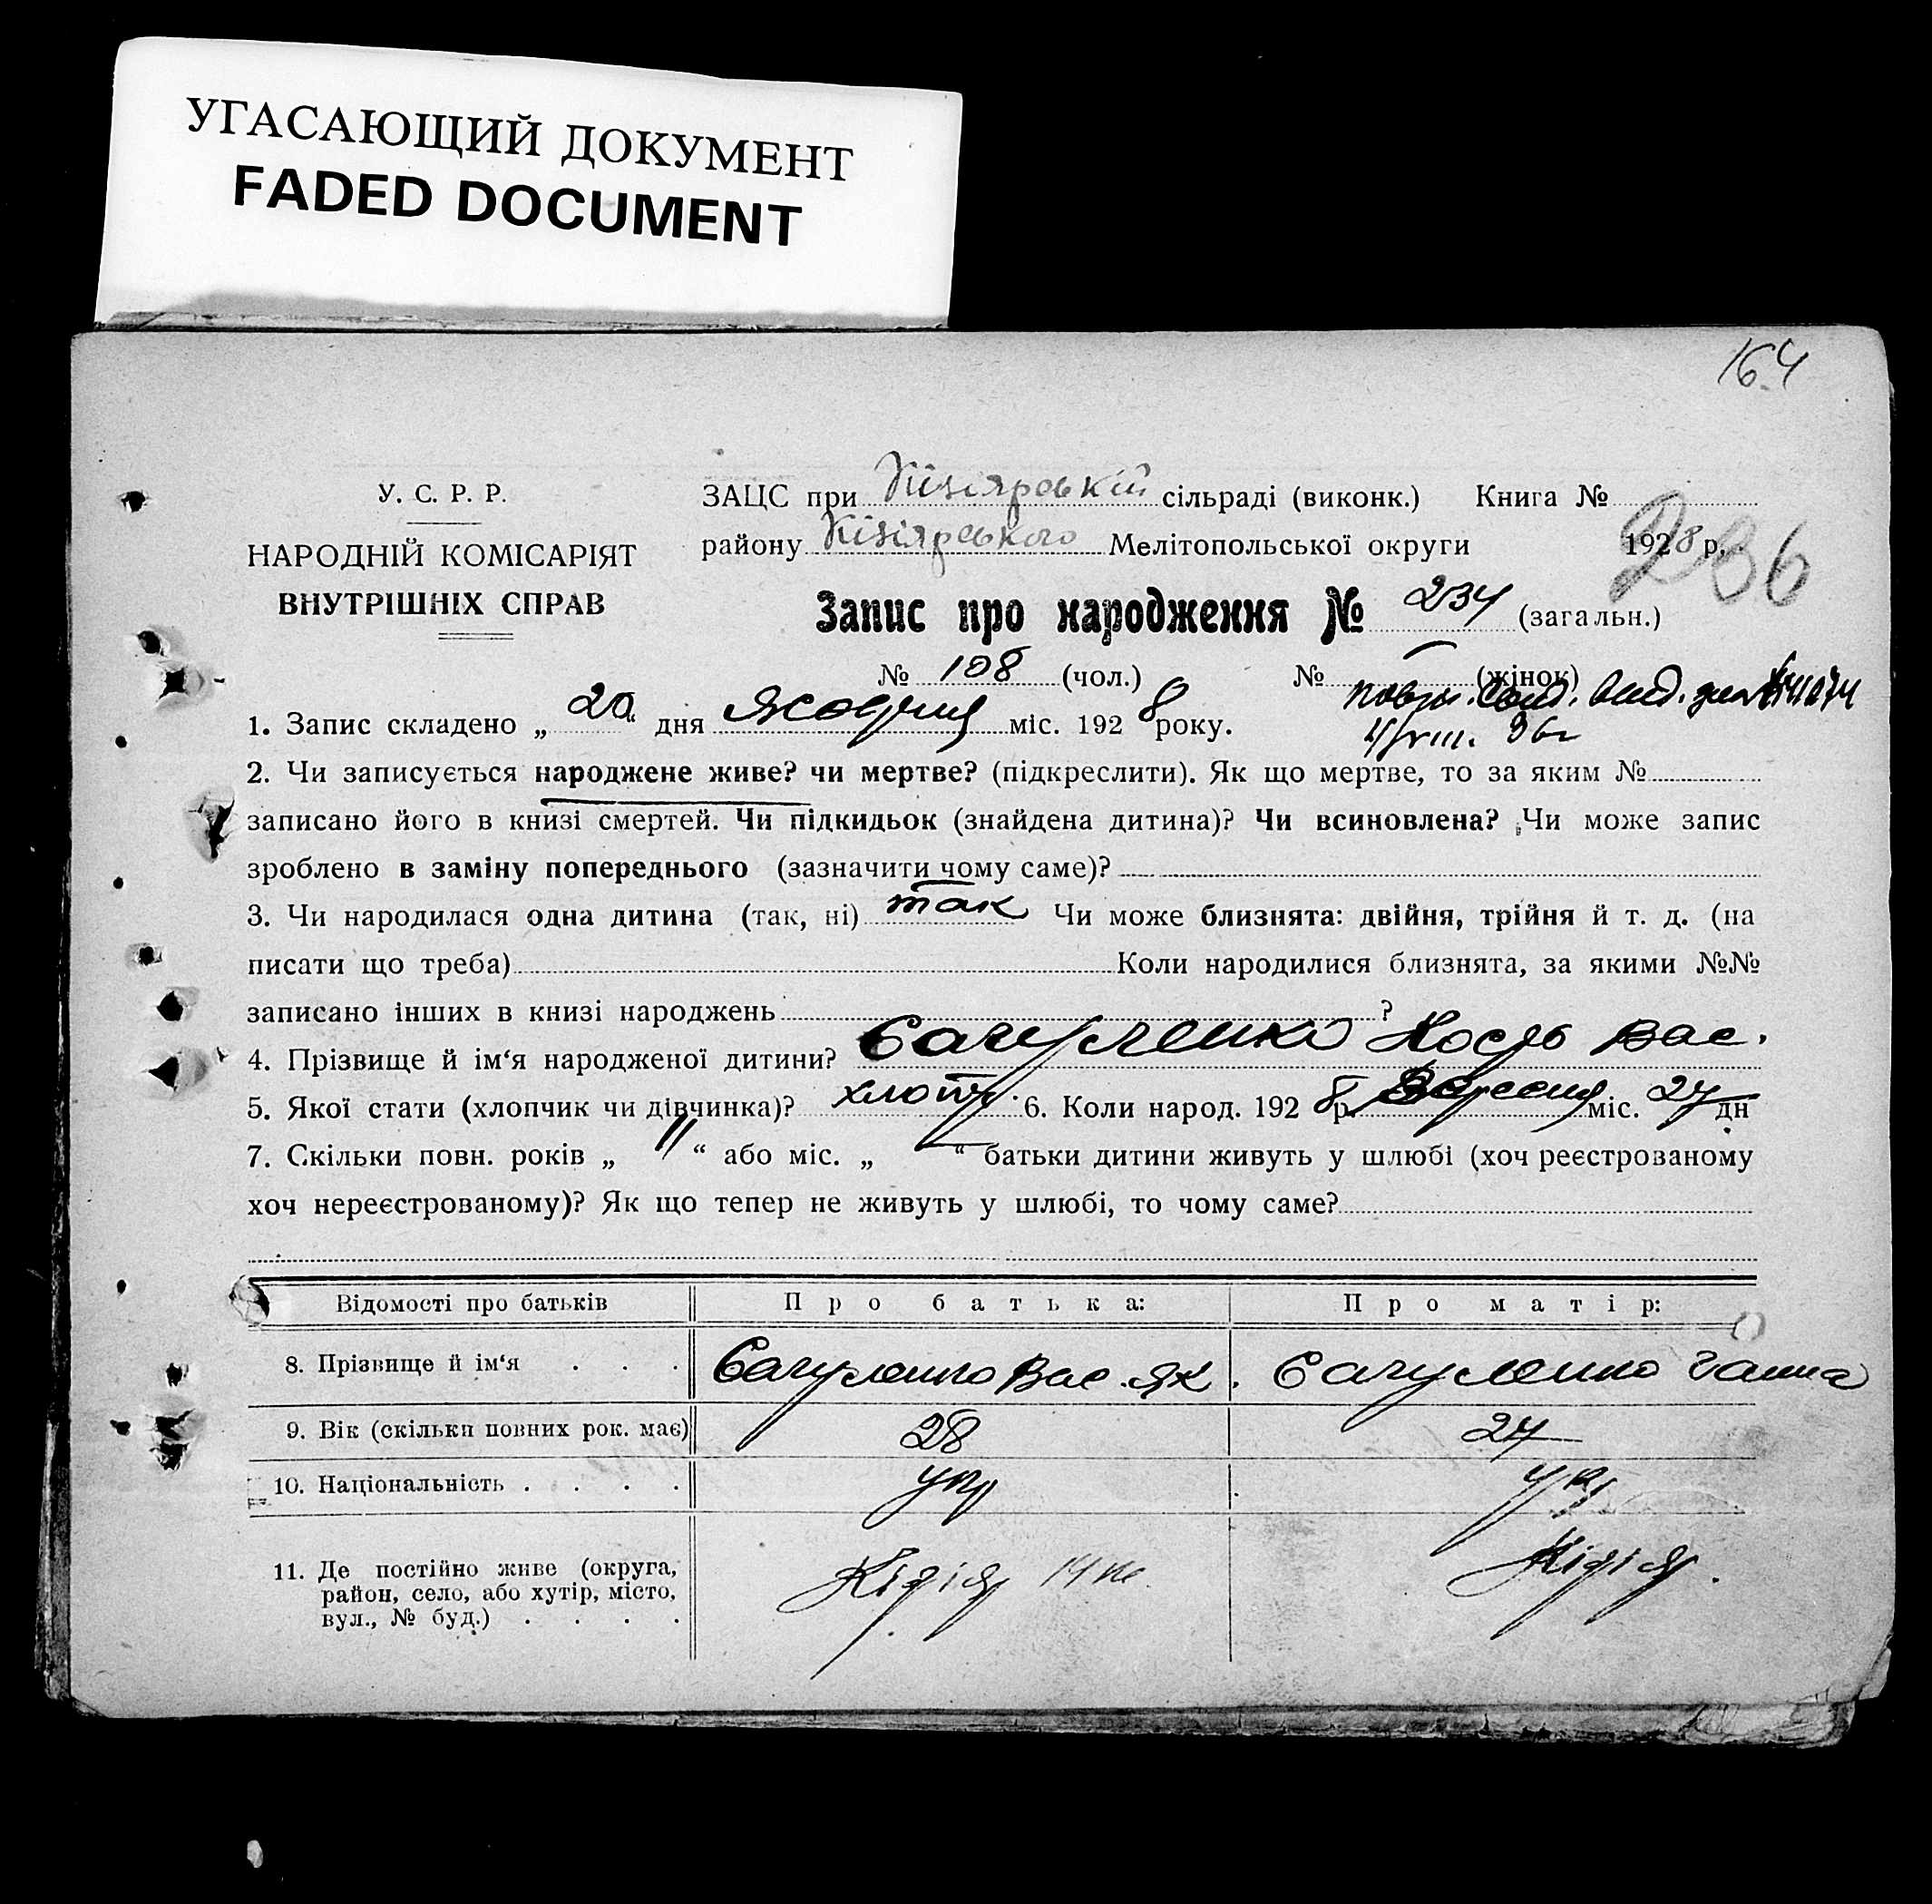 УГАСАЮЩИЙ ДОКУМЕНТ
FADED DOCUMENT
164
У. С. Р. Р.
НАРОДНІЙ КОМІСАРІЯТ
ВНУТРІШНІХ СПРАВ
ЗАЦС при Кізіярській сільраді (виконк.) Книга №
району Кізіярського Мелітопольської округи 1928 р.
236
Запис про народження № 234 (загальн.)
№ 108 (чол.) № — (жінок)
1. Запис складено „ 20 “ дня Жовтня міс. 1928 року.
2. Чи записується народжене живе? чи мертве? (підкреслити). Як що мертве, то за яким №
записано його в книзі смертей. Чи підкидьок (знайдена дитина)? Чи всиновлена? Чи може запис
зроблено в заміну попереднього (зазначити чому саме)?
3. Чи народилася одна дитина (так, ні) так Чи може близнята: двійня, трійня й т. д. (на
писати що треба) Коли народилися близнята, за якими №№
записано інших в книзі народжень ?
4. Прізвище й ім‘я народженої дитини? Вас.
5. Якої стати (хлопчик чи дівчинка)? хлопч. 6. Коли народ. 1928 р. Вересня міс. 27 дн
7. Скільки повн. років „ 11 “ або міс. „ — “ батьки дитини живуть у шлюбі (хоч реєстрованому
хоч нереєстрованому)? Як що тепер не живуть у шлюбі, то чому саме?
Відомості про батьків Про батька: Про матір:
8. Прізвище й ім‘я . . . Вас. Як. Ганна
9. Вік (скільки повних рок. має) 28 27
10. Національність . . . . укр укр
11. Де постійно живе (округа, Кізіяр Кізіяр.
район, село, або хутір, місто,
вул., № буд.) . . . .